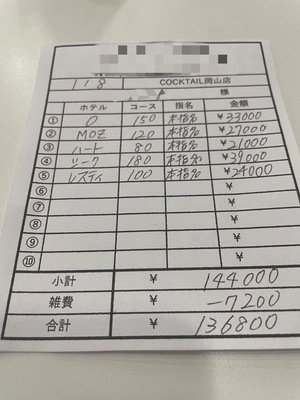 1 8 COCKTAIL岡山店
様
ホテル コース 指名 金額
① O 150 本指名 ¥33000
② MOZ 120 本指名 ¥27000
③ ハート 80 本指名 ¥21000
④ シーク 180 本指名 ¥39000
⑤ レスティ 100 本指名 ¥24000
⑥ ¥
⑦ ¥
⑧ ¥
⑨ ¥
⑩ ¥
小計 ¥ 144000
雑費 ¥ -7200
合計 ¥ 136800